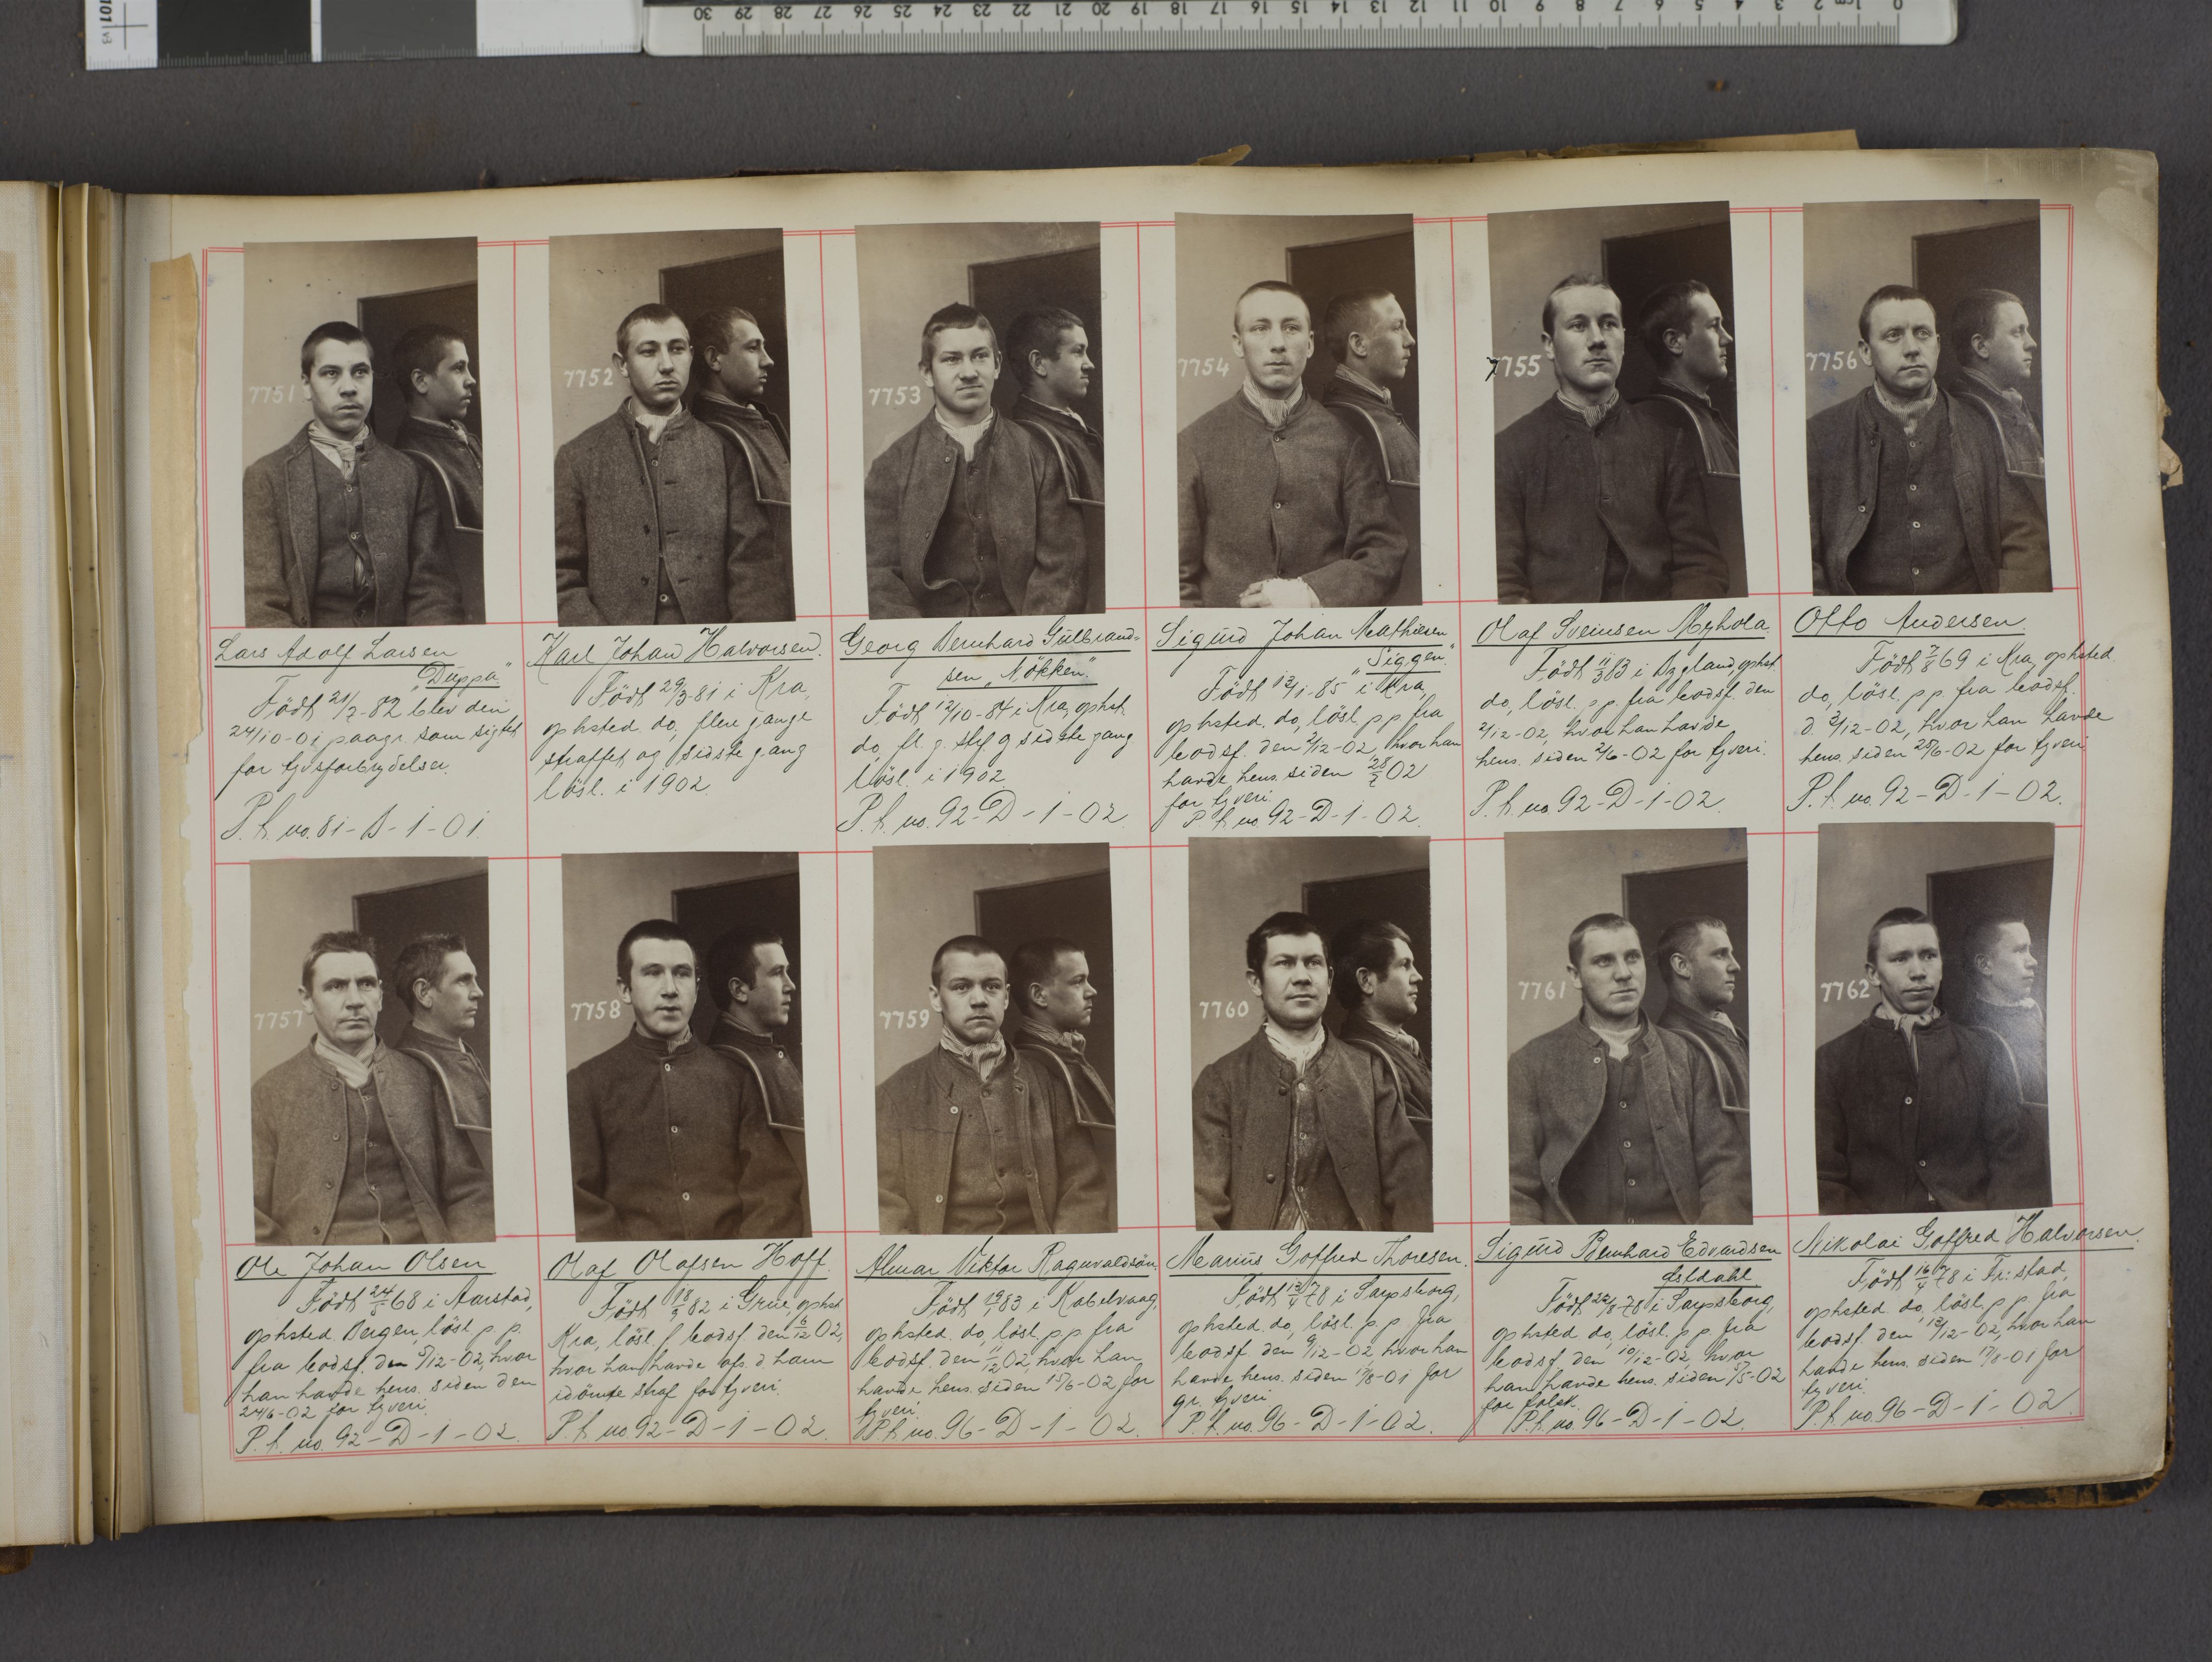 30 29 28 27 26 25 24 23 22 21 20 19 18 17 16 15 14 13 12 11 10 9 8 7 6 5 4 3 2 1 cm 0
7751
7752
7753
7754
7755
7756
Lars Adolf Larsen
"Duppa."
Födt 21/7-82 blev den
24/10-01 paagr. som sigtet
for tyvsforbrydelser.
P. f. no. 81-D-1-01.
Karl Johan Halvorsen.
Födt 29/3-81 i Kra,
ophsted. do, flere gange
straffet og sidste gang
lösl. i 1902.
Georg Bernhard Gulbrand=
sen "Nökken."
Födt 12/10-84 i Kra, ophst.
do, fl. g. stf. g sidste gang
lösl. i 1902
P. f. no. 92-D-1-02.
Sigurd Johan Mathiesen
"Siggen."
Födt 13/1-85 i Kra,
ophsted. do, lösl. p p fra
bodsf. den 2/12-02, hvor han
havde hens. siden 28/2 02
for tyveri.
P. f. no. 92-D-1-02.
Olaf Sveinsen Myhola.
Födt 11/3 83 i Bygland, ophst.
do, lösl. p. p. fra bodsf. den
2/12-02, hvor han havde
hens. siden 2/6-02 for tyveri.
P. f. no. 92-D-1-02.
Otto Andersen.
Födt 7/8 69 i Kra, ophsted.
do, lösl. p p. fra bodsf.
d. 3/12-02, hvor han havde
hens. siden 25/6-02 for tyveri.
P. f. no. 92-D-1-02.
7757
7758
7759
7760
7761
7762
Ole Johan Olsen
Födt 24/5 68 i Aarstad,
ophsted Bergen, lösl. p. p.
fra bodsf. den 5/12-02, hvor
han havde hens. siden den
24/6-02 for tyveri.
P. f. no. 92-D-1-02.
Olaf Olafsen Hoff.
Födt 18/9 82 i Grue, ophst.
Kra, lösl. f. bodsf. den 6/12 02,
hvor han havde afs. d. ham
idömte straf for tyveri.
P. f. no. 92-D-1-02.
Almar Viktor Ragnvaldsön.
Födt 19/1 83 i Kabelvaag,
ophsted. do, lösl. p. p fra
bodsf. den 11/12 02, hvor han
havde hens. siden 15/6-02 for
tyveri.
P. f. no. 96-D-1-02.
Marius Gotfred Thoresen.
Födt 13/4 78 i Sarpsborg,
ophsted. do, lösl. p. p. fra
bodsf. den 9/12-02 hvor han
havde hens. siden 17/8-01 for
gr. tyveri.
P. f. no. 96-D-1-02.
Sigurd Bernhard Edvardsen
Estdahl
Födt 22/8-78 i Sarpsborg,
ophsted do, lösl. p p fra
bodsf. den 10/12-02, hvor
han havde hens. siden 5/5-02
for falsk.
P. f. no. 96-D-1-02.
Nikolai Gotfred Halvorsen.
Födt 16/4 78 i Fr:stad,
ophsted. do, lösl. p. p. fra
bodsf. den 13/12-02, hvor han
havde hens. siden 17/8-01 for
tyveri.
P. f. no. 96-D-1-02.